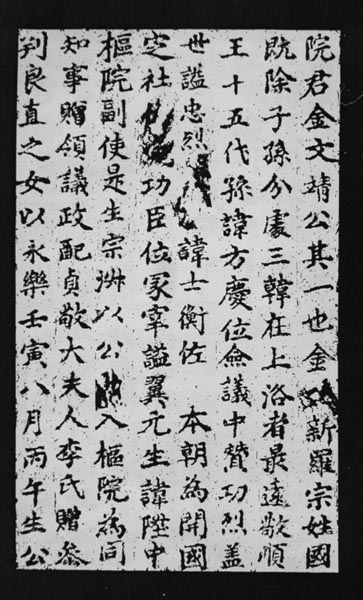 院君金文靖公其一也金新羅宗姓國
既除子孫分處三韓在上洛者最遠敬順
王十五代孫諱方慶位僉議中贊功烈盖
世謚忠烈 諱士衡佐 本朝為開國
定社功臣位冢宰謚翼元生諱陞中
樞院副使是生宗淑以公入樞院為同
知事贈領議政配貞敬大夫人李氏贈叅
判良直之女以永樂壬寅八月丙午生公